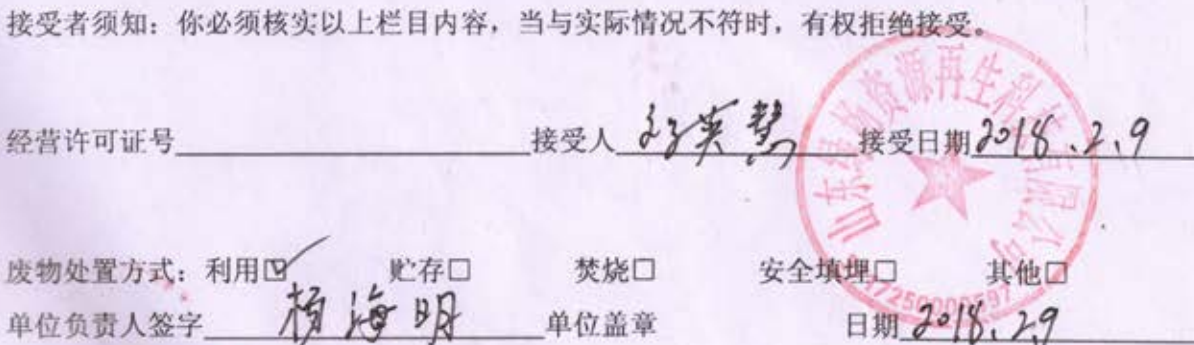 接受者须知：你必须核实以上栏目内容，当与实际情况不符时，有权拒绝接受。
经营许可证号 接受人 孙英慧 接受日期 2018.2.9
废物处置方式：利用☑ 贮存□ 焚烧□ 安全填埋□ 其他□
单位负责人签字 杨海明 单位盖章 日期 2018.2.9
资源再生科技有限公司